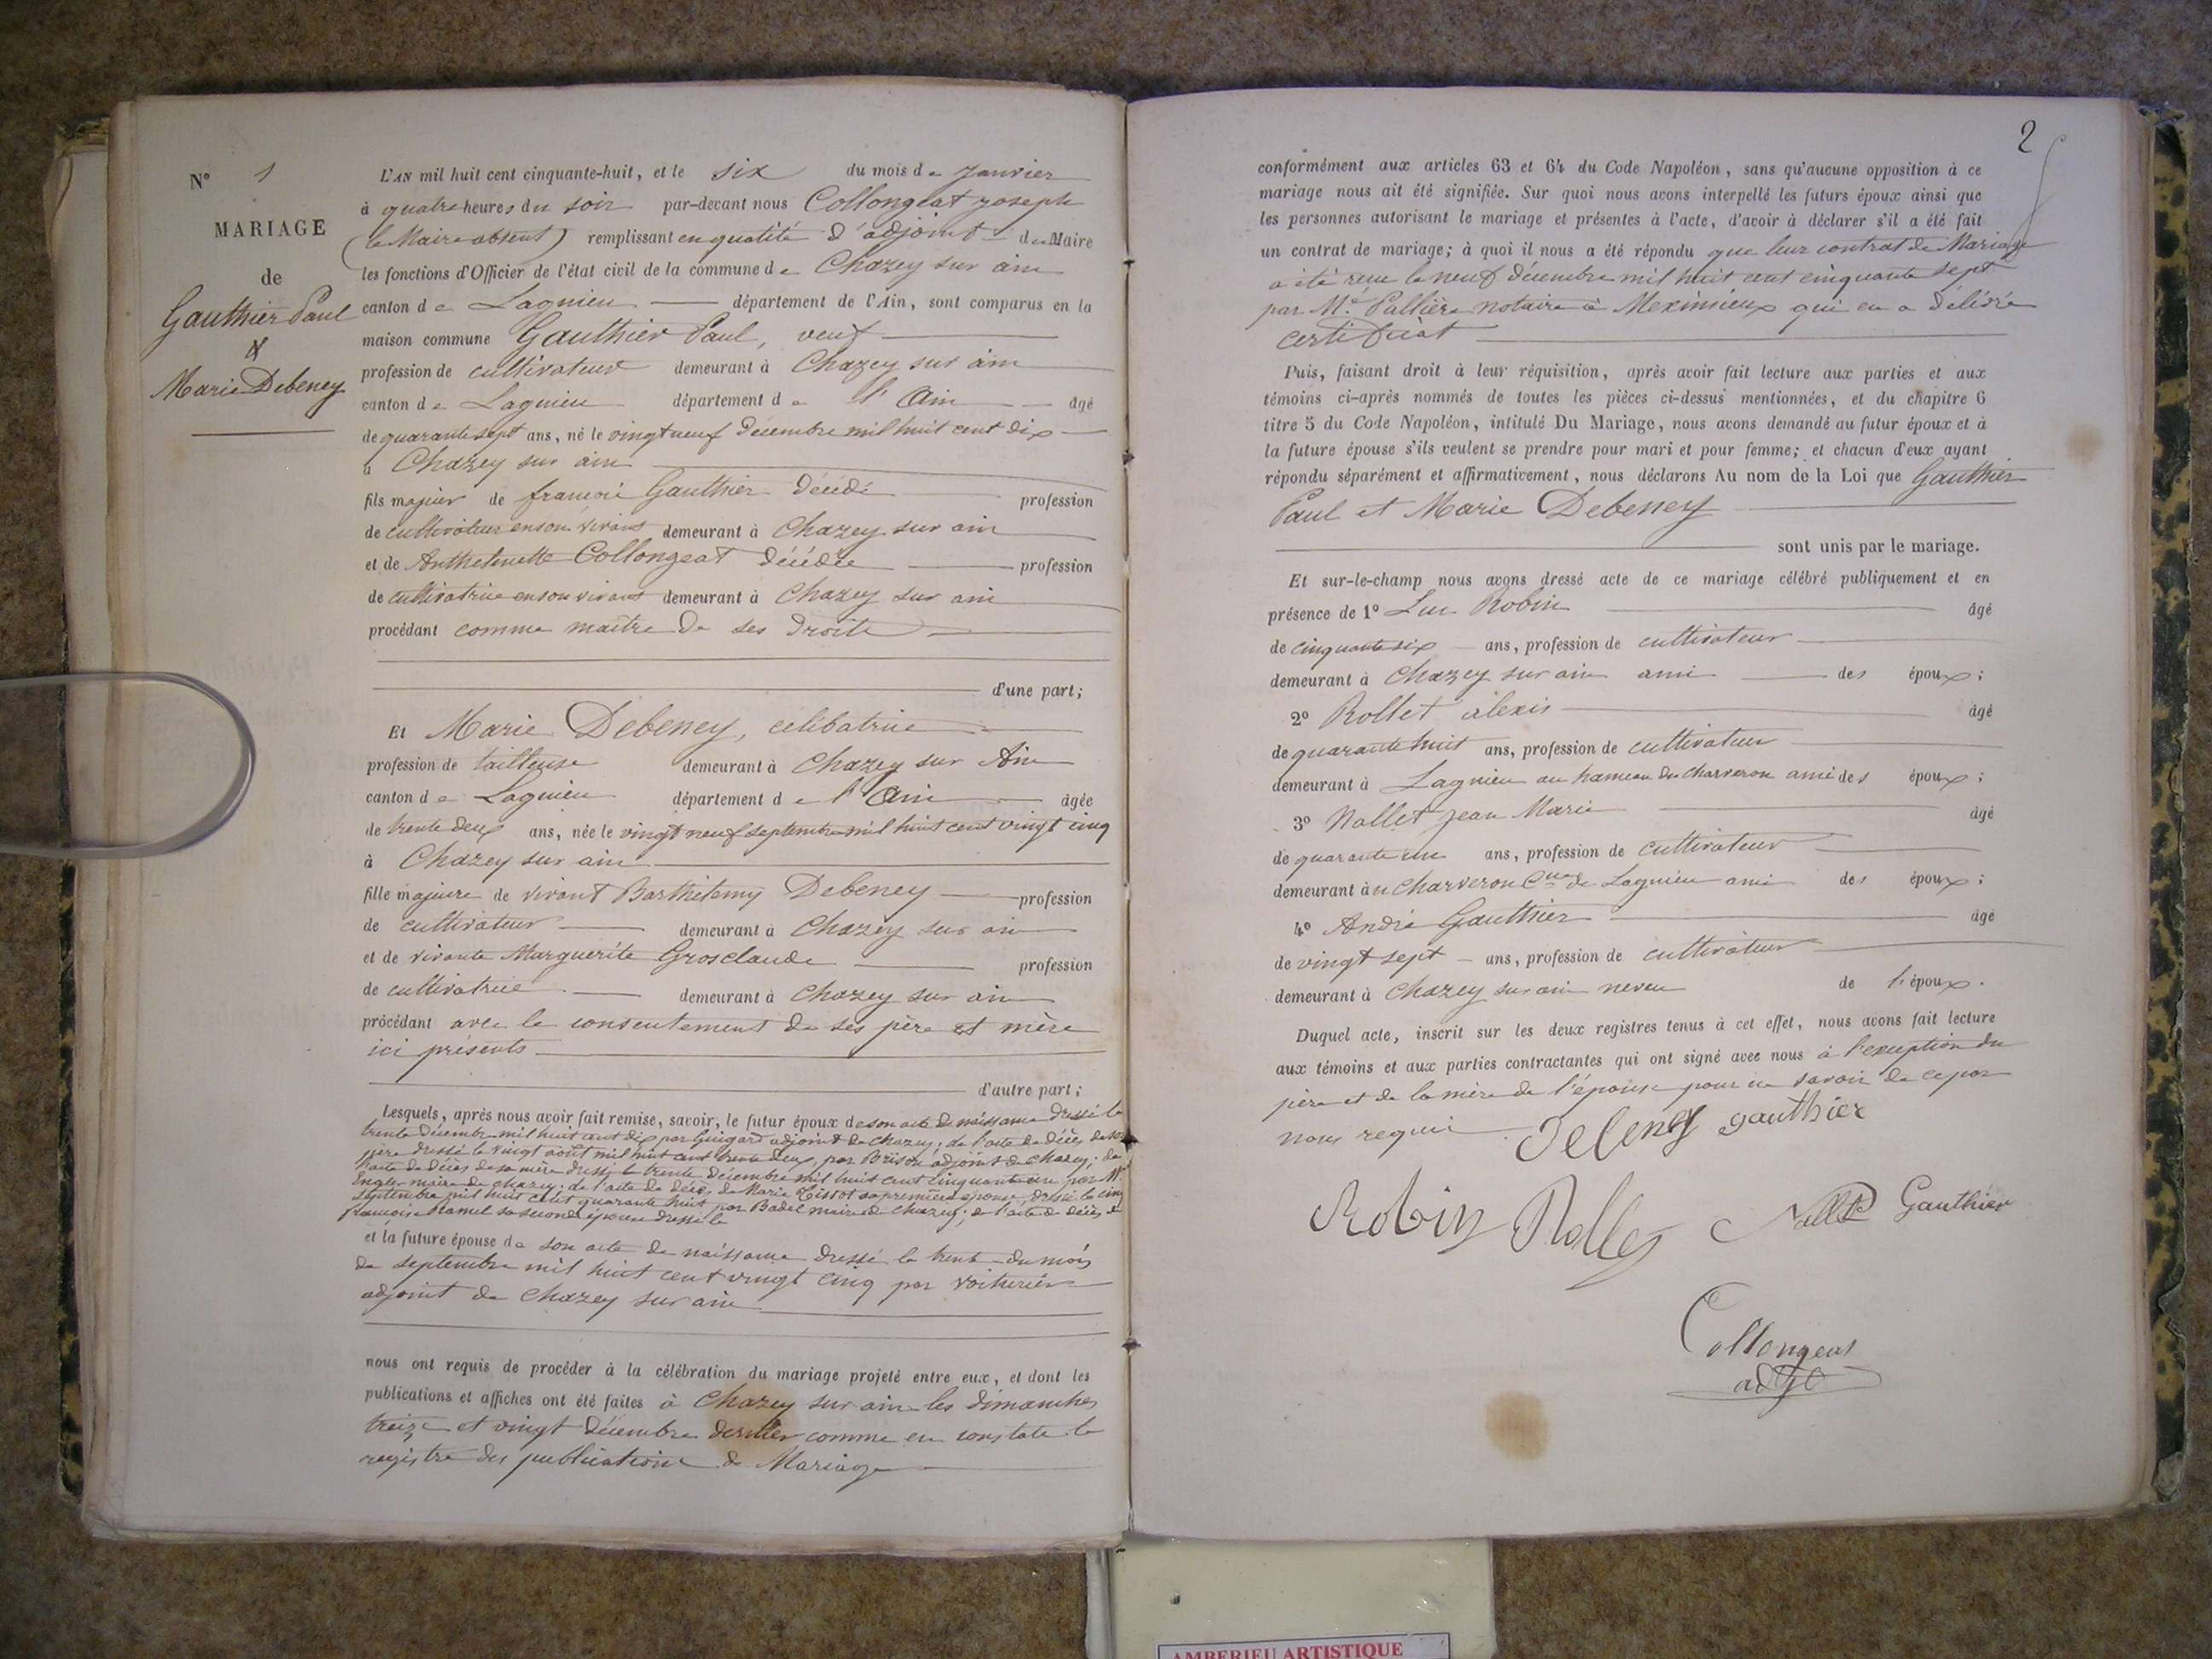 N° 1
MARIAGE
de
Gauthier Paul
&
Marie Debeney
L'AN mil huit cent cinquante-huit, et le six du mois de Janvier
à quatre heures du soir par-devant nous Collongeat Joseph
(le Maire absent) remplissant en qualité d'adjoint du Maire
les fonctions d'Officier de l'état civil de la commune de Chazey sur ain
canton de Lagnieu département de l'Ain, sont comparus en la
maison commune Gauthier Paul, veuf
profession de cultivateur demeurant à Chazey sur ain
canton de Lagnieu département de l'Ain âgé
de quarante sept ans, né le vingt neuf Decembre mil huit cent dix
à Chazey sur ain
fils majeur de françois Gauthier décédé profession
de cultivateur en son vivant demeurant à Chazey sur ain
et de Anthelmette Collongeat décédée profession
de cultivatrice en son vivant demeurant à Chazey sur ain
procédant comme maître de ses droits
d'une part;
Et Marie Debeney, celibatrice
profession de tailleuse demeurant à Chazey sur Ain
canton de Lagnieu département de l'Ain âgée
de trente deux ans, née le vingt neuf septembre mil huit cent vingt cinq
à Chazey sur ain
fille majeure de vivant Barthélemy Debeney profession
de cultivateur demeurant à Chazey sur ain
et de vivante Marguerite Grosclaude profession
de cultivatrice demeurant à Chazey sur ain
procédant avec le consentement de ses père et mère
ici présents
d'autre part;
Lesquels, après nous avoir fait remise, savoir, le futur époux de son acte de naissance dressé le
trente décembre mil huit cent dix par Guigard adjoint de Chazey; de l'acte de décès de son
père dressé le vingt août mil huit cent trente deux par Brison adjoint de Chazey; de
l'acte de décès de sa mère dressé le trente décembre mil huit cent cinquante un par Mr
maire de Chazey; de l'acte de décès de Marie Tissot sa première épouse, dressé le cinq
septembre mil huit cent quarante huit par Badel maire de Chazey; de l'acte de décès de
françoise Ramel sa seconde épouse dressé le
et la future épouse de son acte de naissance dressé le trente du mois
de septembre mil huit cent vingt cinq par voiturier
adjoint de Chazey sur ain
nous ont requis de procéder à la célébration du mariage projeté entre eux, et dont les
publications et affiches ont été faites à Chazey sur ain les dimanches
treize et vingt décembre dernier comme en constate le
registre des publications de Mariage
2
conformément aux articles 63 et 64 du Code Napoléon, sans qu'aucune opposition à ce
mariage nous ait été signifiée. Sur quoi nous avons interpellé les futurs époux ainsi que
les personnes autorisant le mariage et présentes à l'acte, d'avoir à déclarer s'il a été fait
un contrat de mariage; à quoi il nous a été répondu que leur contrat de Mariage
a été reçu le neuf décembre mil huit cent cinquante sept
par Me Pallière notaire à Meximieux qui en a délivré
certificat
Puis, faisant droit à leur réquisition, après avoir fait lecture aux parties et aux
témoins ci-après nommés de toutes les pièces ci-dessus mentionnées, et du chapitre 6
titre 5 du Code Napoléon, intitulé Du Mariage, nous avons demandé au futur époux et à
la future épouse s'ils veulent se prendre pour mari et pour femme; et chacun d'eux ayant
répondu séparément et affirmativement, nous déclarons Au nom de la Loi que Gauthier
Paul et Marie Debeney
sont unis par le mariage.
Et sur-le-champ nous avons dressé acte de ce mariage célébré publiquement et en
présence de 1° Luc Robin âgé
de cinquante six ans, profession de cultivateur
demeurant à Chazey sur ain ami des époux;
2° Rollet alexis âgé
de quarante huit ans, profession de cultivateur
demeurant à Lagnieu au hameau du charveron ami des époux;
3° Nallet Jean Marie âgé
de quarante un ans, profession de cultivateur
demeurant à u Charveron Cne de Lagnieu ami des époux;
4° André Gauthier âgé
de vingt sept ans, profession de cultivateur
demeurant à Chazey sur ain neveu de l'époux.
Duquel acte, inscrit sur les deux registres tenus à cet effet, nous avons fait lecture
aux témoins et aux parties contractantes qui ont signé avec nous à l'exception du
père et de la mère de l'épouse pour ne savoir de ce par
nous requis Debeney gauthier
Robin Rollet Nallet Gauthier
Collongeat
adjt
AMBERIEU ARTISTIQUE